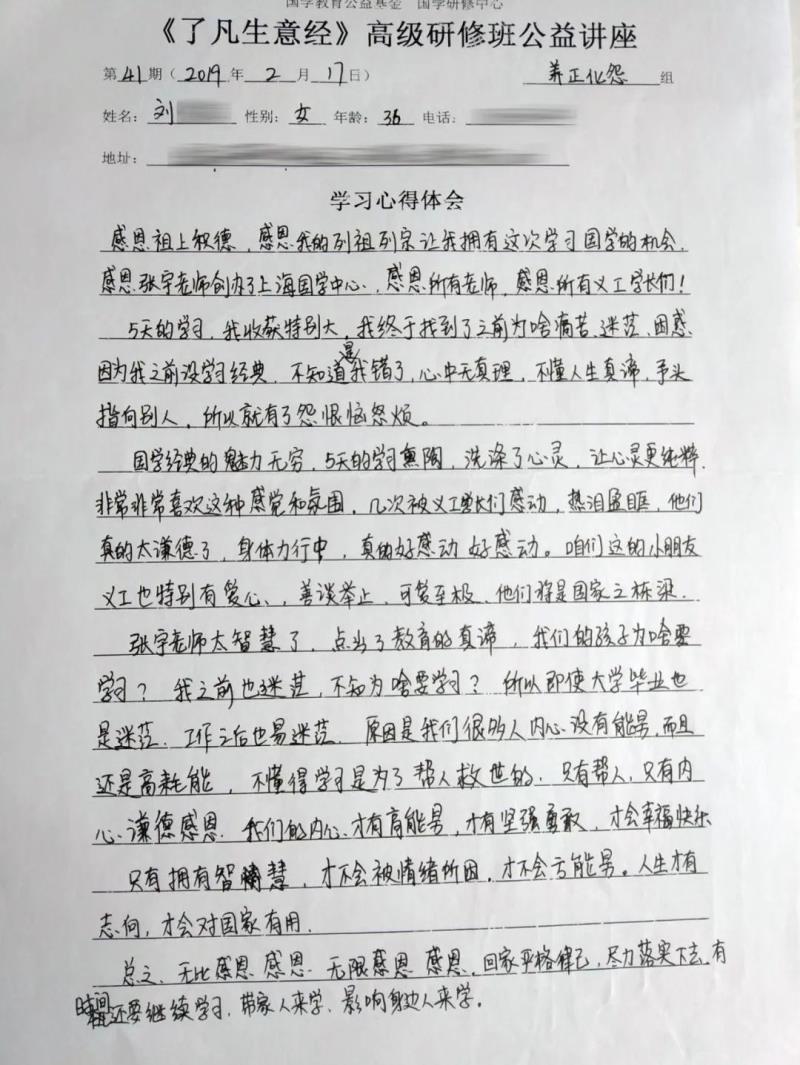 国学教育公益基金 国学研修中心
《了凡生意经》高级研修班公益讲座
第41期（2019年2月17日） 养正化怨组
姓名：刘 性别：女 年龄：36 电话：
地址：
学习心得体会
感恩祖上积德，感恩我的列祖列宗让我拥有这次学习国学的机会，
感恩张宇老师创办了上海国学中心，感恩所有老师，感恩所有义工学长们！
5天的学习，我收获特别大，我终于找到了之前为啥痛苦、迷茫、困惑
因为我之前没学习经典，不知道是我错了，心中无真理，不懂人生真谛，矛头
指向别人，所以就有了怨恨恼怒烦。
国学经典的魅力无穷，5天的学习熏陶，洗涤了心灵，让心灵更纯粹，
非常非常喜欢这种感觉和氛围，几次被义工学长们感动，热泪盈眶，他们
真的太谦德了，身体力行中，真的好感动 好感动。咱们这的小朋友
义工也特别有爱心，善谈举止，可爱至极、他们将是国家之栋梁．
张宇老师太智慧了，点出了教育的真谛，我们的孩子为啥要
学习？我之前也迷茫，不知为啥要学习？所以即使大学毕业也
是迷茫．工作之后也易迷茫．原因是我们很多人内心没有能量，而且
还是高耗能，不懂得学习是为了帮人救世的．只有帮人，只有内
心谦德感恩．我们的内心才有高能量，才有坚强勇敢，才会幸福快乐
只有拥有智慧，才不会被情绪所困，才不会亏能量。人生才有
志向，才会对国家有用．
总之，无比感恩 感恩 无限感恩 感恩，回家严格律己，尽力落实下去，有
时间还要继续学习，带家人来学，影响身边人来学。